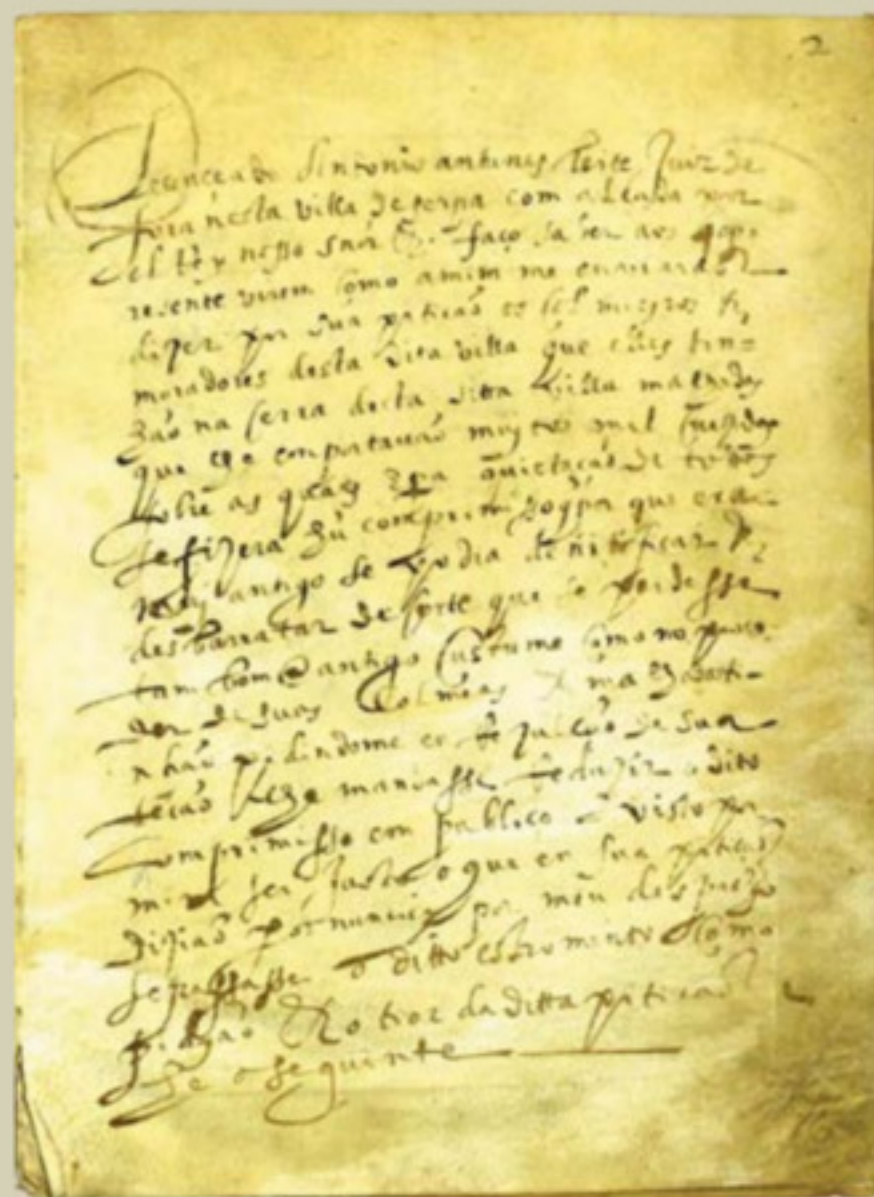 2
Lecenceado Antonio antunes leite Juiz de
fora nesta villa de serpa com alcada por
el Rey nosso snor &.ª faço saber aos que o p
resente virem como amim me enuiarão
dizer por sua pitição os colmeyros
moradores desta dita villa que elles tin=
hão na serra desta ditta villa malhadas
que se conpravão muytos mil cruzados
sobre as quaes e pa quietação de todos
se fizera hũ comprimisso q por que era
muy antigo se podia
desbaratar de sorte que se perdesse
tam bom e antigo custume como no
der de suas Colmeas e malhadas ti
nhão pidindome
lhe mandasse Reduzir o dito
Comprimisso em publico e visto por
mim ser Justo o que em sua pitição
dizião pornunciey por meu despacho
se passasse o ditto estromento Como
pidião E o tior da ditta pitição
he o seguinte